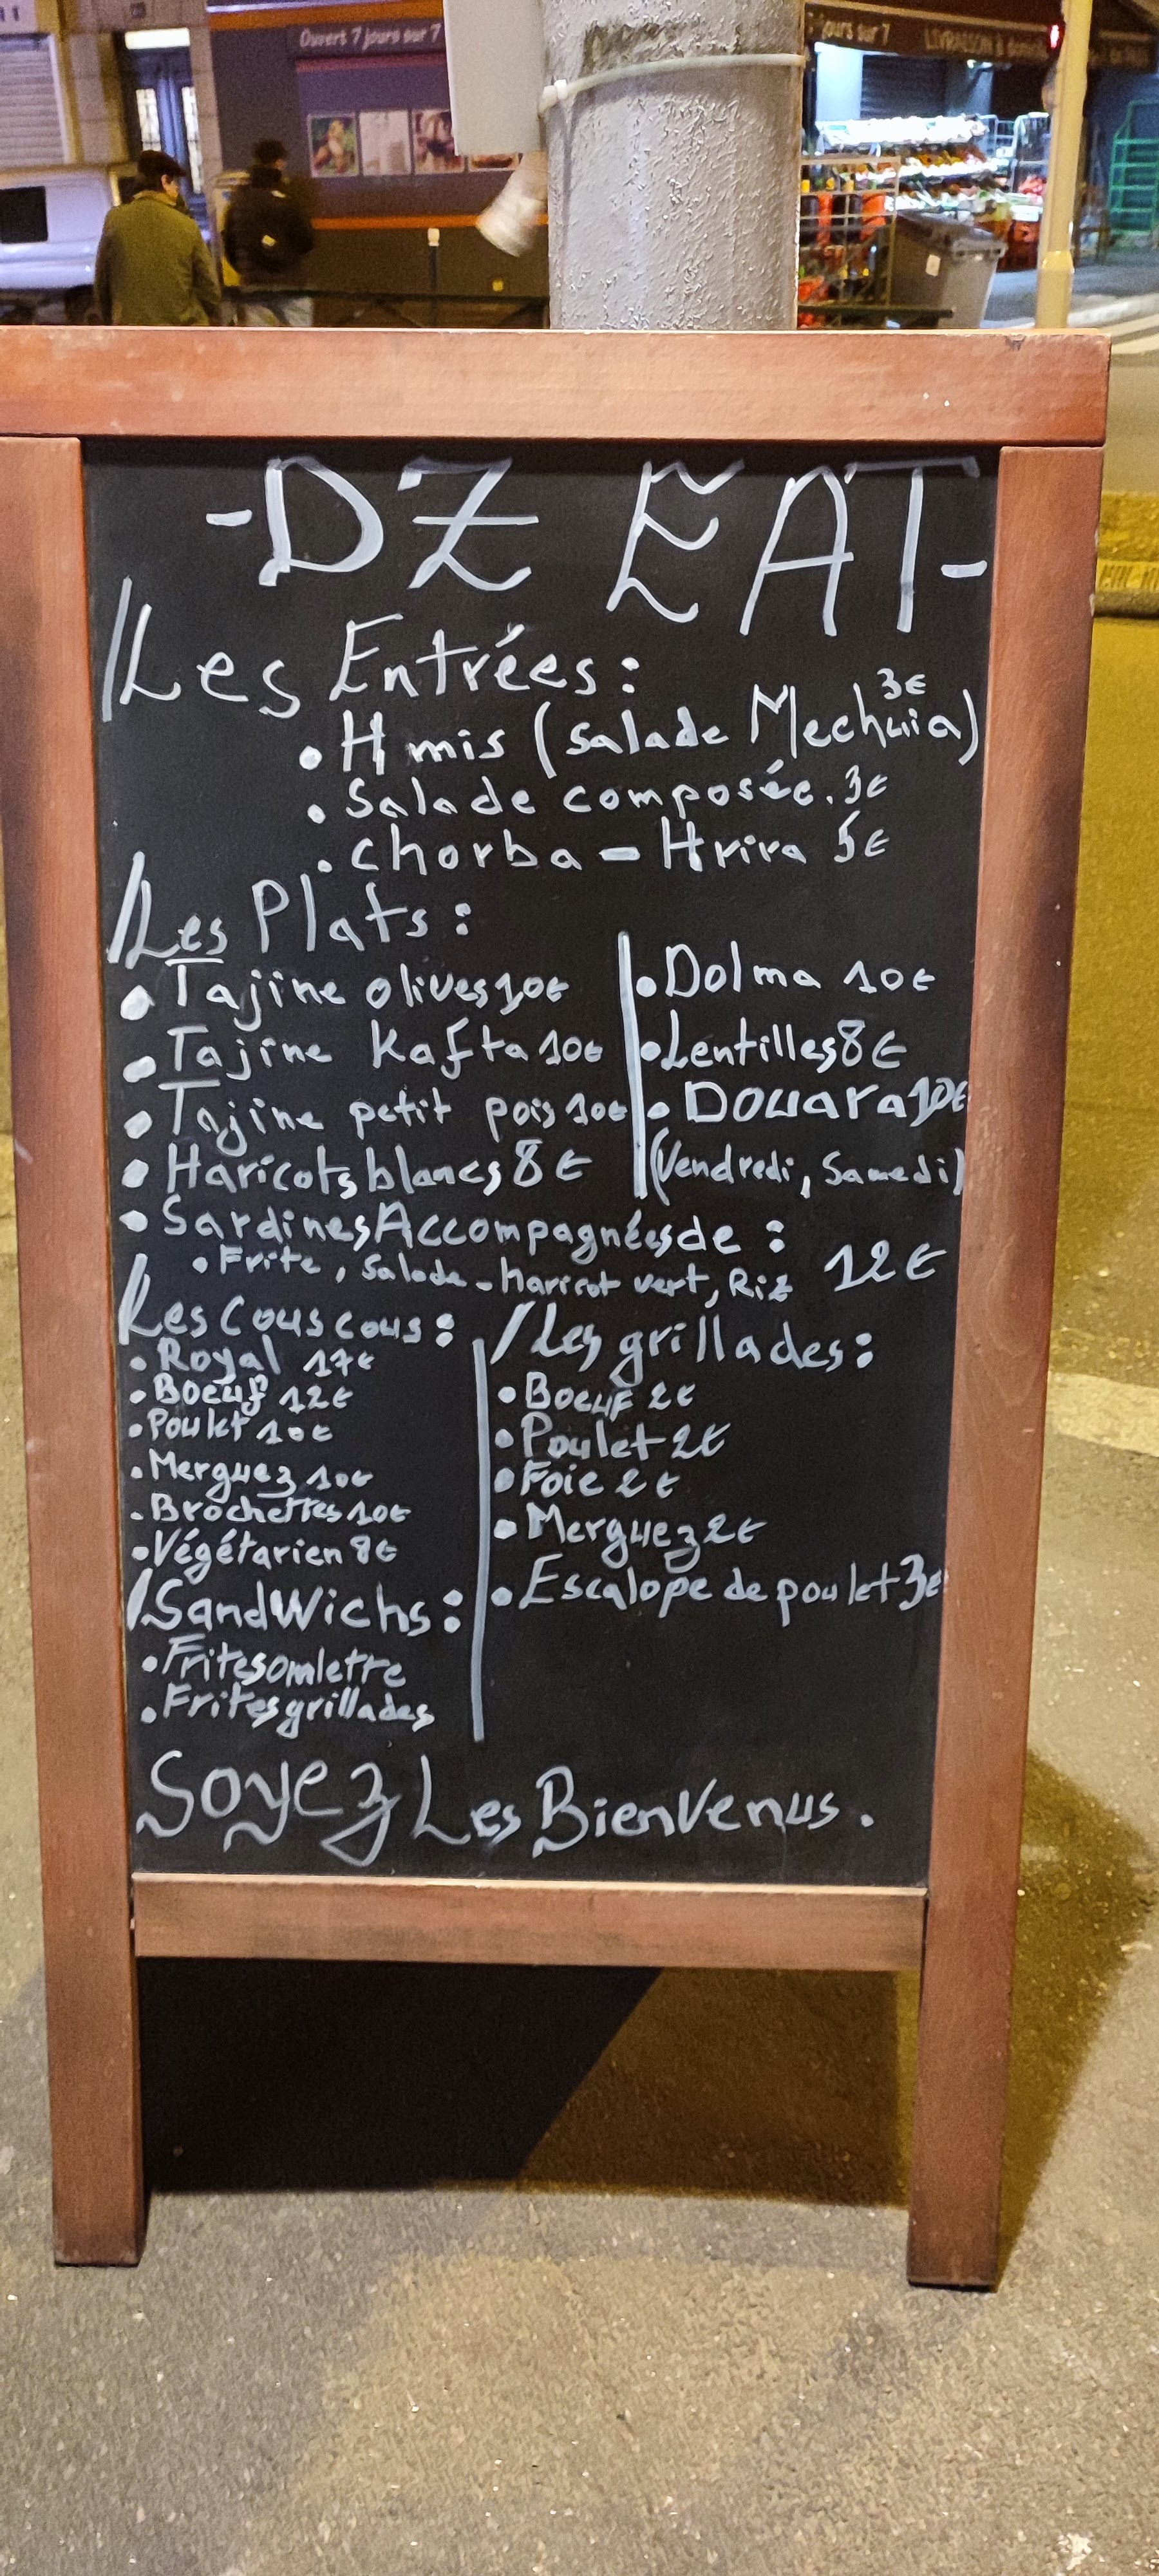 Ouvert 7 jours sur 7
7 jours sur 7 LIVRAISON à domicile
-DZ EAT-
/Les Entrées:
• Hmis (salade Mechuia) 3€
• Salade composée. 3€
• Chorba - Hrira 5€
/Les Plats:
• Tajine olives 10€
• Tajine Kafta 10€
• Tajine petit pois 10€
• Haricots blancs 8€
• Dolma 10€
• Lentilles 8€
• Douara 10€
(Vendredi, Samedi)
• Sardines Accompagnées de :
• Frite, Salade - haricot vert, Riz 12€
/Les Couscous:
• Royal 17€
• Boeuf 12€
• Poulet 10€
• Merguez 10€
• Brochettes 10€
• Végétarien 8€
/SandWichs:
• Frites omlette
• Frites grillades
/Les grillades:
• Boeuf 2€
• Poulet 2€
• Foie 2€
• Merguez 2€
• Escalope de poulet 3€
Soyez Les BienVenus.